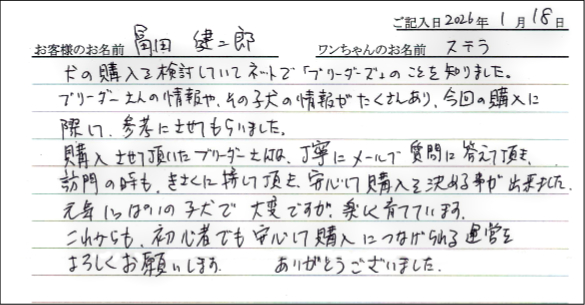 ご記入日 2026年 1月 18日
お客様のお名前 冨田 健二郎 ワンちゃんのお名前 ステラ
犬の購入を検討していてネットで「ブリーダーズ」のことを知りました。
ブリーダーさんの情報や、その子犬の情報がたくさんあり、今回の購入に
際して、参考にさせてもらいました。
購入させて頂いたブリーダーさんは、丁寧にメールで質問に答えて頂き、
訪問の時も、きさくに接して頂き、安心して購入を決める事が出来ました。
元気いっぱいの子犬で大変ですが、楽しく育てています。
これからも、初心者でも安心して購入につなげられる運営を
よろしくお願いします。 ありがとうございました。